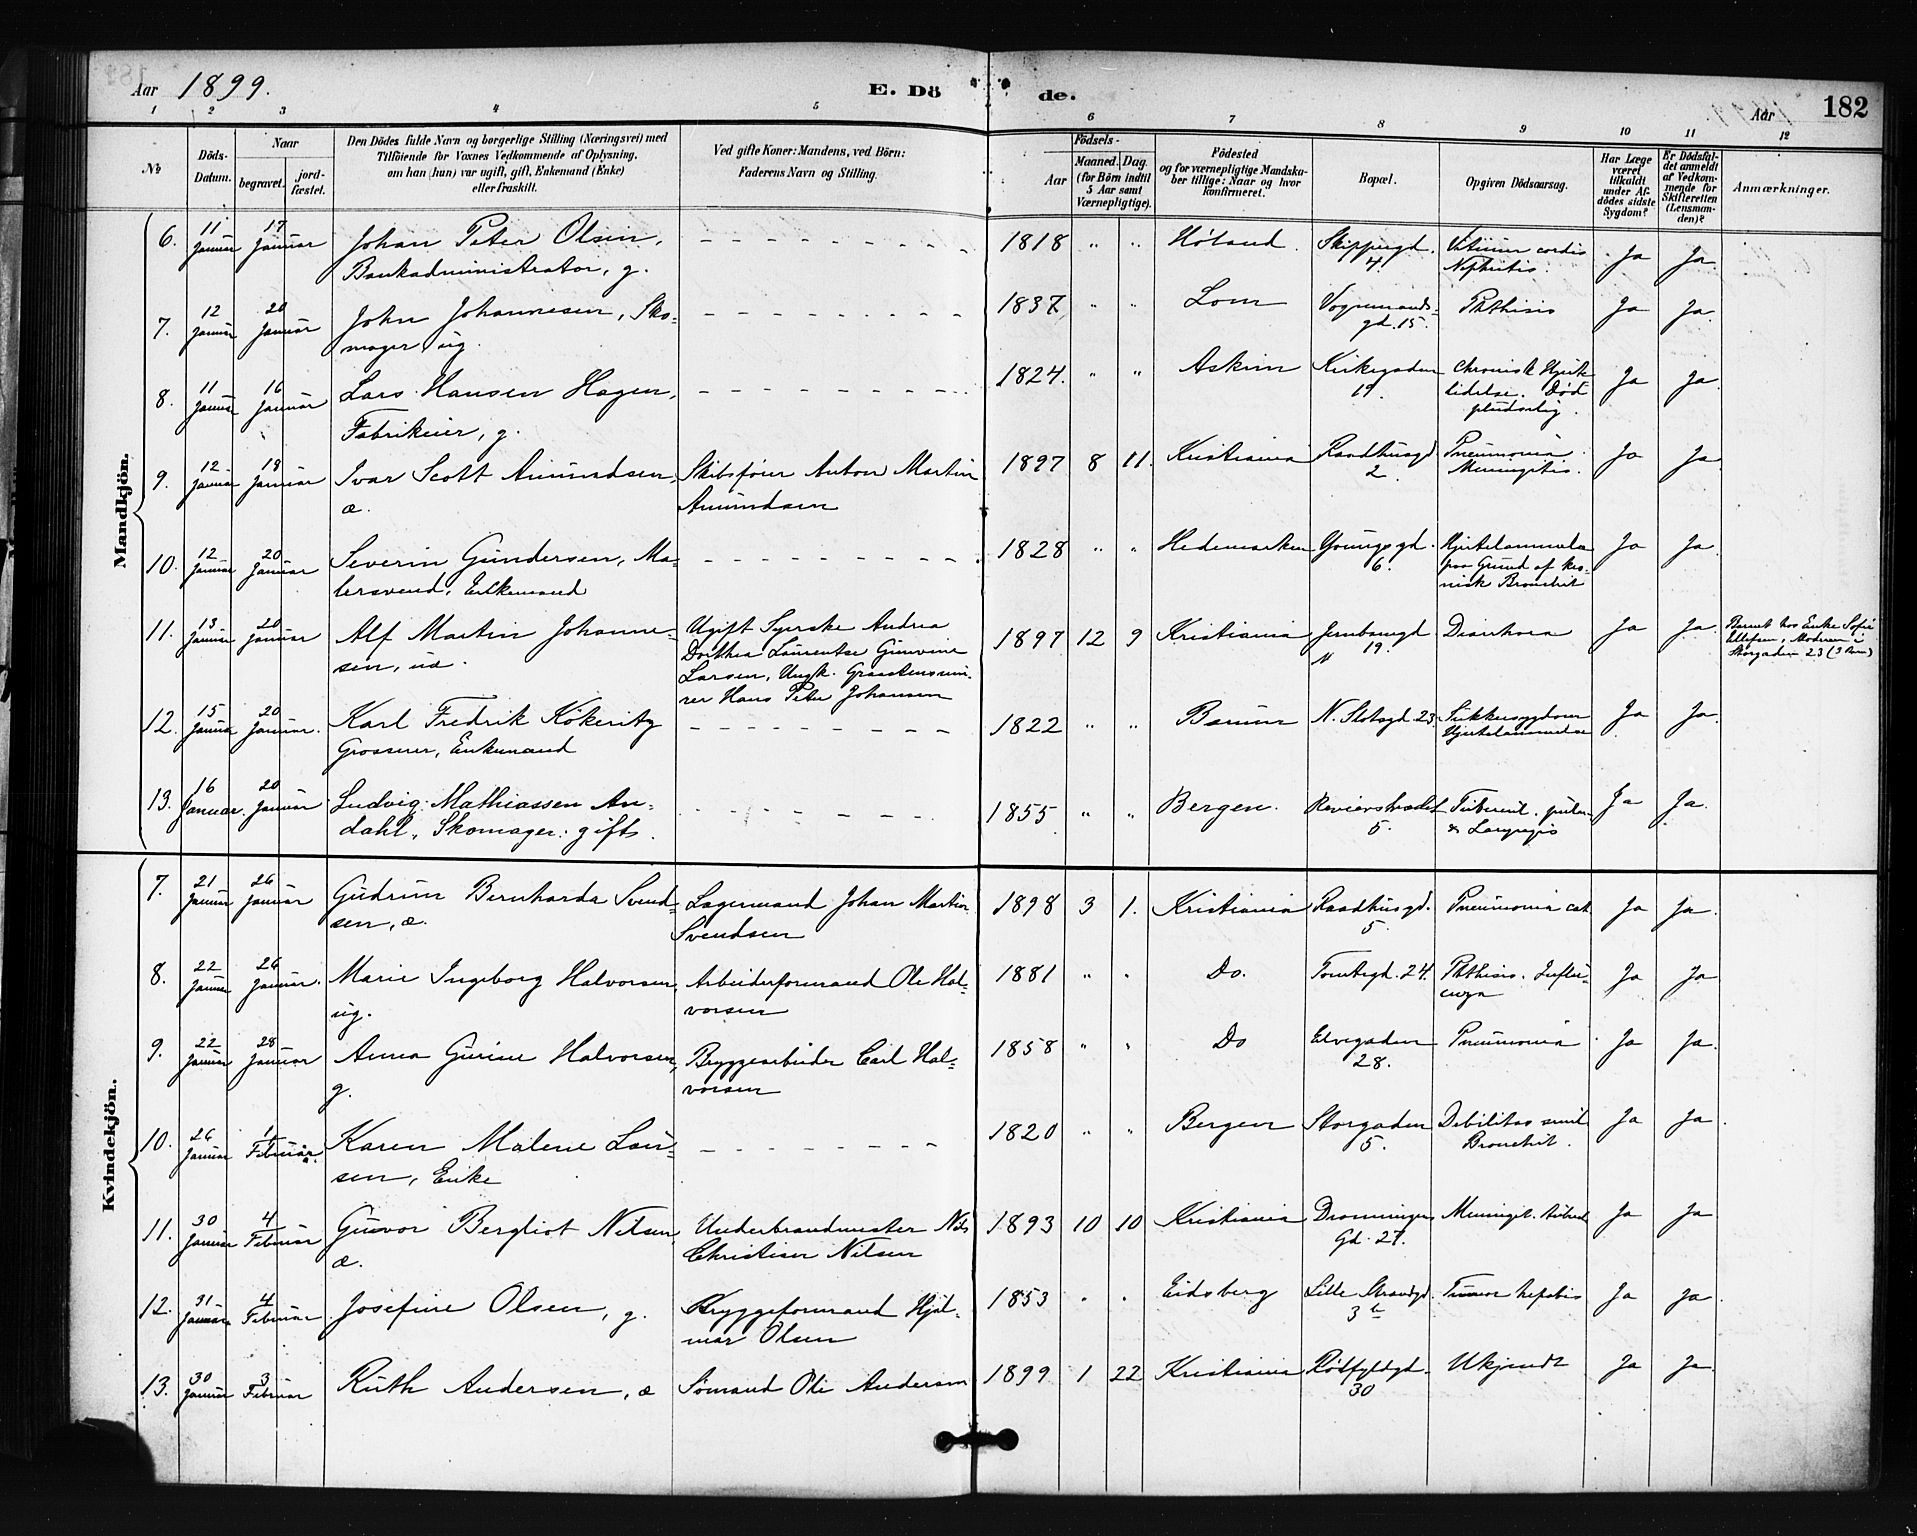 Aar 1899.
E. Dö
de.
Aar
182
1 2 3 4 5 6 7 8 9 10 11 12
№
Döds-Datum.
Naar
begravet.
jord-fæstet.
Den Dödes fulde Navn og borgerlige Stilling (Næringsvei) med
Tilföiende for Voxnes Vedkommende af Oplysning,
om han (hun) var ugift, gift, Enkemand (Enke)
eller fraskilt.
Ved gifte Koner: Mandens, ved Börn:
Faderens Navn og Stilling.
Födsels-
Aar
Maaned. Dag.
(for Börn indtil
5 Aar samt
Værnepligtige).
Födested
og for værnepligtige Mandska-
ber tillige: Naar og hvor
konfirmeret.
Bopæl.
Opgiven Dödsaarsag.
Har Læge
været
tilkaldt
under Af-
dödes sidste
Sygdom?
Er Dödsfal-
det anmeldt
af Vedkom-
mende for
Skifteretten
(Lensman-
den)?
Anmærkninger.
Mandkjön.
6. 11 Januar 17 Januar Johan Peter Olsen, 1818 " " Höland. Skippergd. Vitium cordis Ja Ja.
Bankadministrator, g. 4. Nephritis.
7. 12 Januar 20 Januar John Johannesen, Sko- 1837 " " Lom Vognmands- Phthisis Ja Ja.
mager, ug. gd. 15.
8. 11 Januar 16 Januar Lars Hansen Hagen, 1824. " " Askim Kirkegaden Chronisk Hjerte Ja Ja.
Fabrikeier, g. 19. lidelse. Död
pludselig.
9. 12 Januar 18 Januar Ivar Scott Amundsen, Skibsförer Anton Martin 1897 8 11. Kristiania Raadhusgd Pneumonia. Ja Ja.
æ. Amundsen 2. Meningitis.
10. 12 Januar 20 Januar Severin Gundersen, Ma- 1828 " " Hedemarken Youngsgd. Hjertelammelse Ja Ja.
lersvend, Enkemand 6. paa Grund af kro-
nisk Bronchit
11. 13 Januar 20 Januar Alf Martin Johanne- Ugift Syerske Andrea 1897 12 9 Kristiania Jernbanegd Diarrhoea Ja Ja.
sen, uæ. Dorthea Laurentse Gunvine 19.
Larsen, Ungk.
rer Hans Peter Johansen
Barnet hos Enke Sofie
Ellefsen, Moderen i
Storgaden 23 (3
12. 15 Januar 20 Januar. Karl Fredrik Kökeritz 1822 " " Bærum N. Slotsgd. 23 Sukkersygdom Ja Ja.
Grosserer, Enkemand Hjertelammelse
13. 16 Januar. 20 Januar Ludvig Mathiassen An- 1855 " " Bergen. Revierstrædet Tubercul. pulm. Ja Ja.
dahl, Skomager: gift. 5. & Laryngis
Kvindekjön.
7. 21 Januar 26 Januar Gudrun Bernharda Svend- Lagermand Johan Martin 1898 3 1. Kristiania Raadhusgd. Pneumonia cat. Ja Ja.
sen, æ. Svendsen 5.
8. 22 Januar 26 Januar. Marie Ingeborg Halvorsen, Arbeiderformand Ole Hal- 1881 " " Do. Tomtegd. 24. Phthisis. Influ- Ja Ja
ug. vorsen enza
9. 22 Januar 28 Januar Anna Gurine Halvorsen, Bryggearbeider Carl Hal- 1858 " " Do Elvegaden Pneumonia Ja Ja.
g. vorsen 28.
10. 26 Januar 1 Februar. Karen Malene Lar- 1820 " " Bergen Storgaden Debilitas senil Ja Ja.
sen, Enke 5. Bronchit.
11. 30 Januar 4 Februar Gunvor Bergliot Nilsen, Underbrandmester Nils 1893 10 10 Kristiania Dronningens Meningit. tuberc. Ja Ja
æ. Christian Nilsen Gd. 27.
12. 31 Januar 4 Februar Josefine Olsen, g. Bryggeformand Hjal- 1853 " " Eidsberg Lille Strandgd Tumor hepatis Ja Ja.
mar Olsen 3 b
13. 30 Januar 3 Februar Ruth Andersen, æ Sömand Ole Andersen 1899 1 22 Kristiania Rostfyldgd. Ukjendt Ja Ja.
30